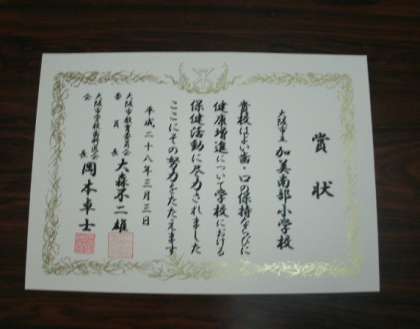 賞状
大阪市立 加美南部小学校
貴校はよい歯・口の保持ならびに
健康増進について学校における
保健活動に尽力されました
ここにその努力をたたえます
平成二十八年三月三日
大阪市教育委員会
委員長 大森不二雄
大阪市学校歯科医会
会長 岡本卓士